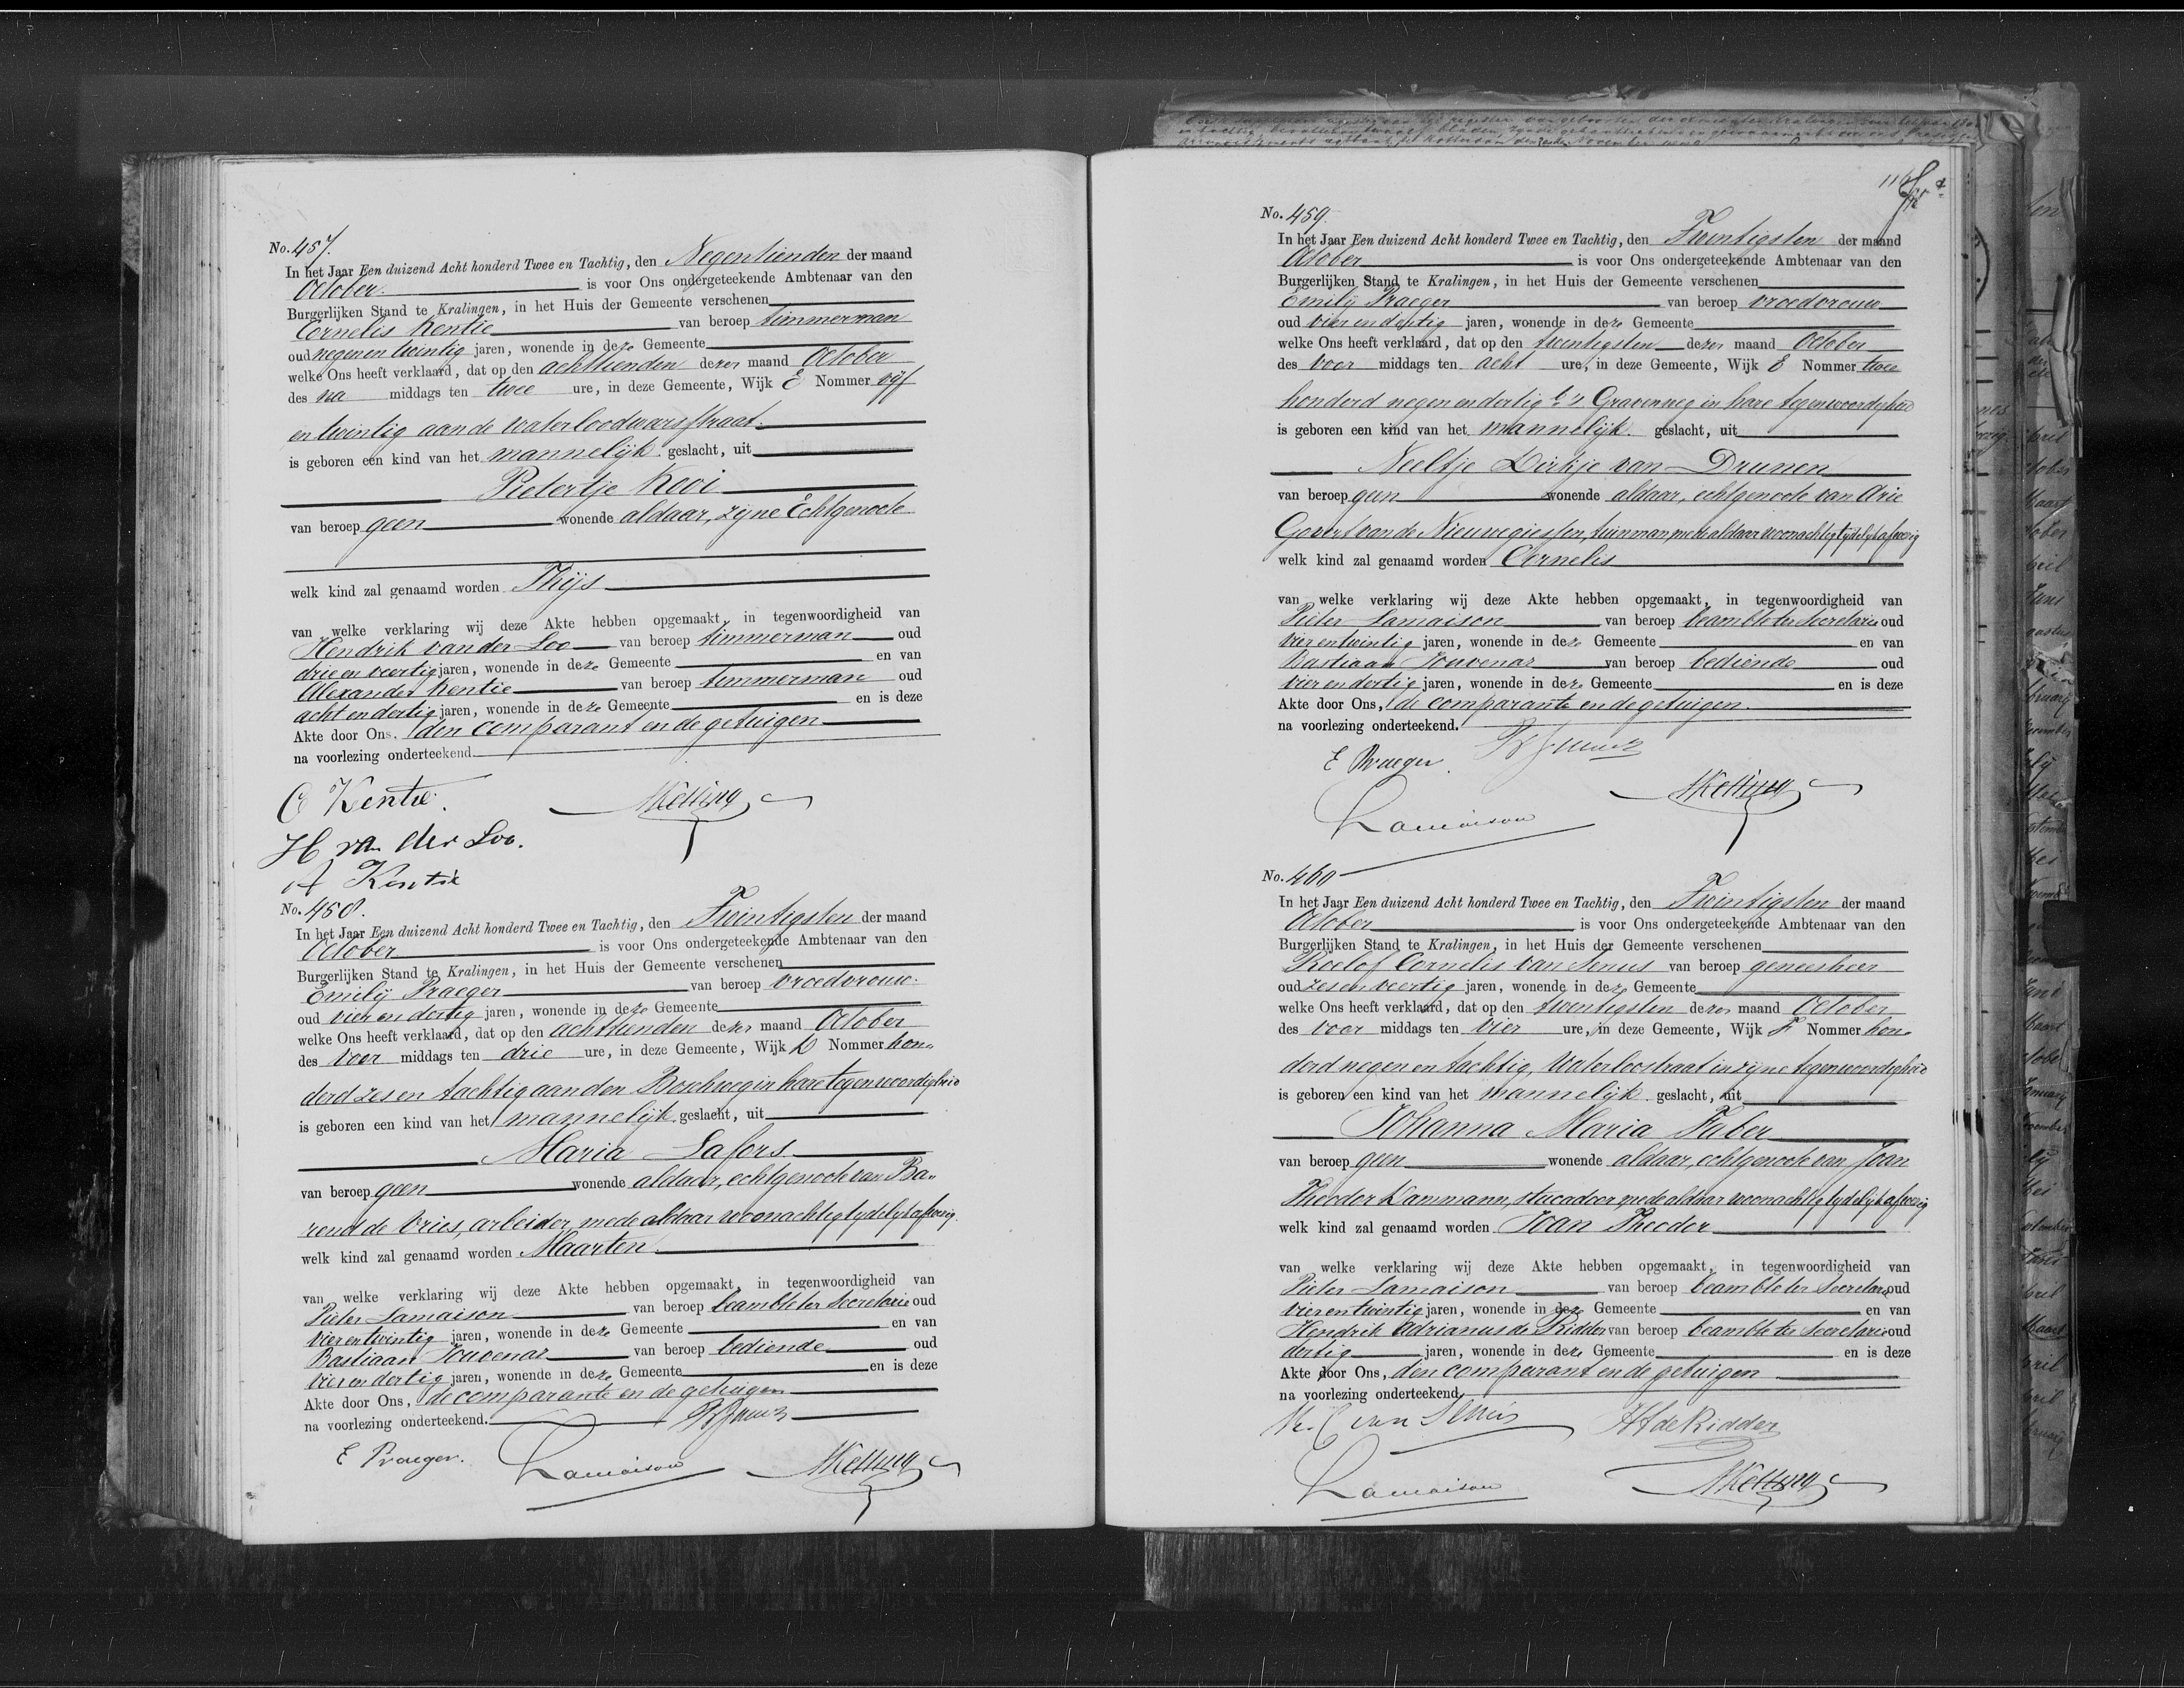 No. 457.
In het Jaar Een duizend Acht honderd Twee en Tachtig, den Negentienden der maand
October. is voor Ons ondergeteekende Ambtenaar van den
Burgerlijken Stand te Kralingen, in het Huis der Gemeente verschenen
Cornelis Kentie van beroep timmerman
oud negen en twintig jaren, wonende in deze Gemeente
welke Ons heeft verklaard, dat op den achttienden dezer maand October
des na middags ten twee ure, in deze Gemeente, Wijk E Nommer vijf
en twintig aan de waterloodwarsstraat.
is geboren een kind van het mannelijk geslacht, uit
Pietertje Kooi
van beroep geen wonende aldaar, zijne Echtgenoote
welk kind zal genaamd worden Thijs
van welke verklaring wij deze Akte hebben opgemaakt, in tegenwoordigheid van
Hendrik van der Loo van beroep timmerman oud
drie en veertig jaren, wonende in deze Gemeente en van
Alexander Kentie van beroep timmerman oud
acht en dertig jaren, wonende in deze Gemeente en is deze
Akte door Ons, den comparant en de getuigen
na voorlezing onderteekend.
C Kentie.
H van der Loo.
A Kentie
No. 458.
In het Jaar Een duizend Acht honderd Twee en Tachtig, den Twintigsten der maand
October is voor Ons ondergeteekende Ambtenaar van den
Burgerlijken Stand te Kralingen, in het Huis der Gemeente verschenen
Emilij Praeger van beroep vroedvrouw
oud vier en dertig jaren, wonende in deze Gemeente
welke Ons heeft verklaard, dat op den achttienden dezer maand October
des voor middags ten drie ure, in deze Gemeente, Wijk D Nommer hon„
derd zes en tachtig aan den Boschweg in hare tegenwoordigheid
is geboren een kind van het mannelijk geslacht, uit
Maria Lafors
van beroep geen wonende aldaar, echtgenoote van Ba„
rend de Vries, arbeider, mede aldaar woonachtig tijdelijk afwezig.
welk kind zal genaamd worden Maarten
van welke verklaring wij deze Akte hebben opgemaakt, in tegenwoordigheid van
Pieter Lamaison van beroep beambte ter Secretarie oud
vier en twintig jaren, wonende in deze Gemeente en van
Bastiaan Jouvenar van beroep bediende oud
vier en dertig jaren, wonende in deze Gemeente en is deze
Akte door Ons, de comparante en de getuigen
na voorlezing onderteekend.
E Praeger.
Lamaison
No. 459.
In het Jaar Een duizend Acht honderd Twee en Tachtig, den Twintigsten der maand
October is voor Ons ondergeteekende Ambtenaar van den
Burgerlijken Stand te Kralingen, in het Huis der Gemeente verschenen
Emilij Praeger van beroep vroedvrouw
oud vier en dertig jaren, wonende in deze Gemeente
welke Ons heeft verklaard, dat op den twintigsten dezer maand October
des voor middags ten acht ure, in deze Gemeente, Wijk E Nommer twee
honderd negen en dertig 's Gravenweg in hare tegenwoordigheid
is geboren een kind van het mannelijk geslacht, uit
Neeltje Dirkje van Drunen
van beroep geen wonende aldaar, echtgenoote van Arie
Govert van de Nieuwegiessen, tuinman, mede aldaar woonachtig tijdelijk afwezig
welk kind zal genaamd worden Cornelis
van welke verklaring wij deze Akte hebben opgemaakt, in tegenwoordigheid van
Pieter Lamaison van beroep beambte ter Secretarie oud
vier en twintig jaren, wonende in deze Gemeente en van
Bastiaan Jouvenar van beroep bediende oud
vier en dertig jaren, wonende in deze Gemeente en is deze
Akte door Ons, de comparante en de getuigen.
na voorlezing onderteekend.
E Praeger.
Lamaison
No. 460
In het Jaar Een duizend Acht honderd Twee en Tachtig, den Twintigsten der maand
October is voor Ons ondergeteekende Ambtenaar van den
Burgerlijken Stand te Kralingen, in het Huis der Gemeente verschenen
Roelof Cornelis van Senus van beroep geneesheer
oud zes en veertig jaren, wonende in deze Gemeente
welke Ons heeft verklaard, dat op den twintigsten dezer maand October
des voor middags ten vier ure, in deze Gemeente, Wijk F Nommer hon„
derd negen en tachtig, Waterloostraat in zijne tegenwoordigheid
is geboren een kind van het mannelijk geslacht, uit
Johanna Maria Faber
van beroep geen wonende aldaar, echtgenoote van Joan
Theodor Kammann, stucadoor, mede aldaar woonachtig tijdelijk afwezig
welk kind zal genaamd worden Joan Theodor
van welke verklaring wij deze Akte hebben opgemaakt, in tegenwoordigheid van
Pieter Lamaison van beroep beambte ter Secretarie oud
vier en twintig jaren, wonende in deze Gemeente en van
Hendrik Adrianus de Ridder van beroep beambte ter Secretarie oud
dertig jaren, wonende in deze Gemeente en is deze
Akte door Ons, den comparant en de getuigen
na voorlezing onderteekend
HAdeRidder
Lamaison